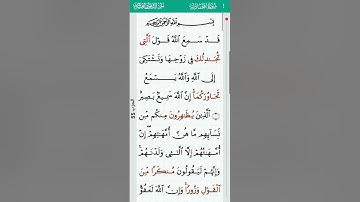 بِسْمِ اللَّهِ الرَّحْمَٰنِ الرَّحِيمِ
قَدْ سَمِعَ اللَّهُ قَوْلَ الَّتِي
تُجَادِلُكَ فِي زَوْجِهَا وَتَشْتَكِي
إِلَى اللَّهِ وَاللَّهُ يَسْمَعُ
تَحَاوُرَكُمَا إِنَّ اللَّهَ سَمِيعٌ بَصِيرٌ
الَّذِينَ يُظَاهِرُونَ مِنكُم مِّن
نِّسَائِهِم مَّا هُنَّ أُمَّهَاتِهِمْ إِنْ
أُمَّهَاتُهُمْ إِلَّا اللَّائِي وَلَدْنَهُمْ
وَإِنَّهُمْ لَيَقُولُونَ مُنكَرًا مِّنَ
الْقَوْلِ وَزُورًا وَإِنَّ اللَّهَ لَعَفُوٌّ